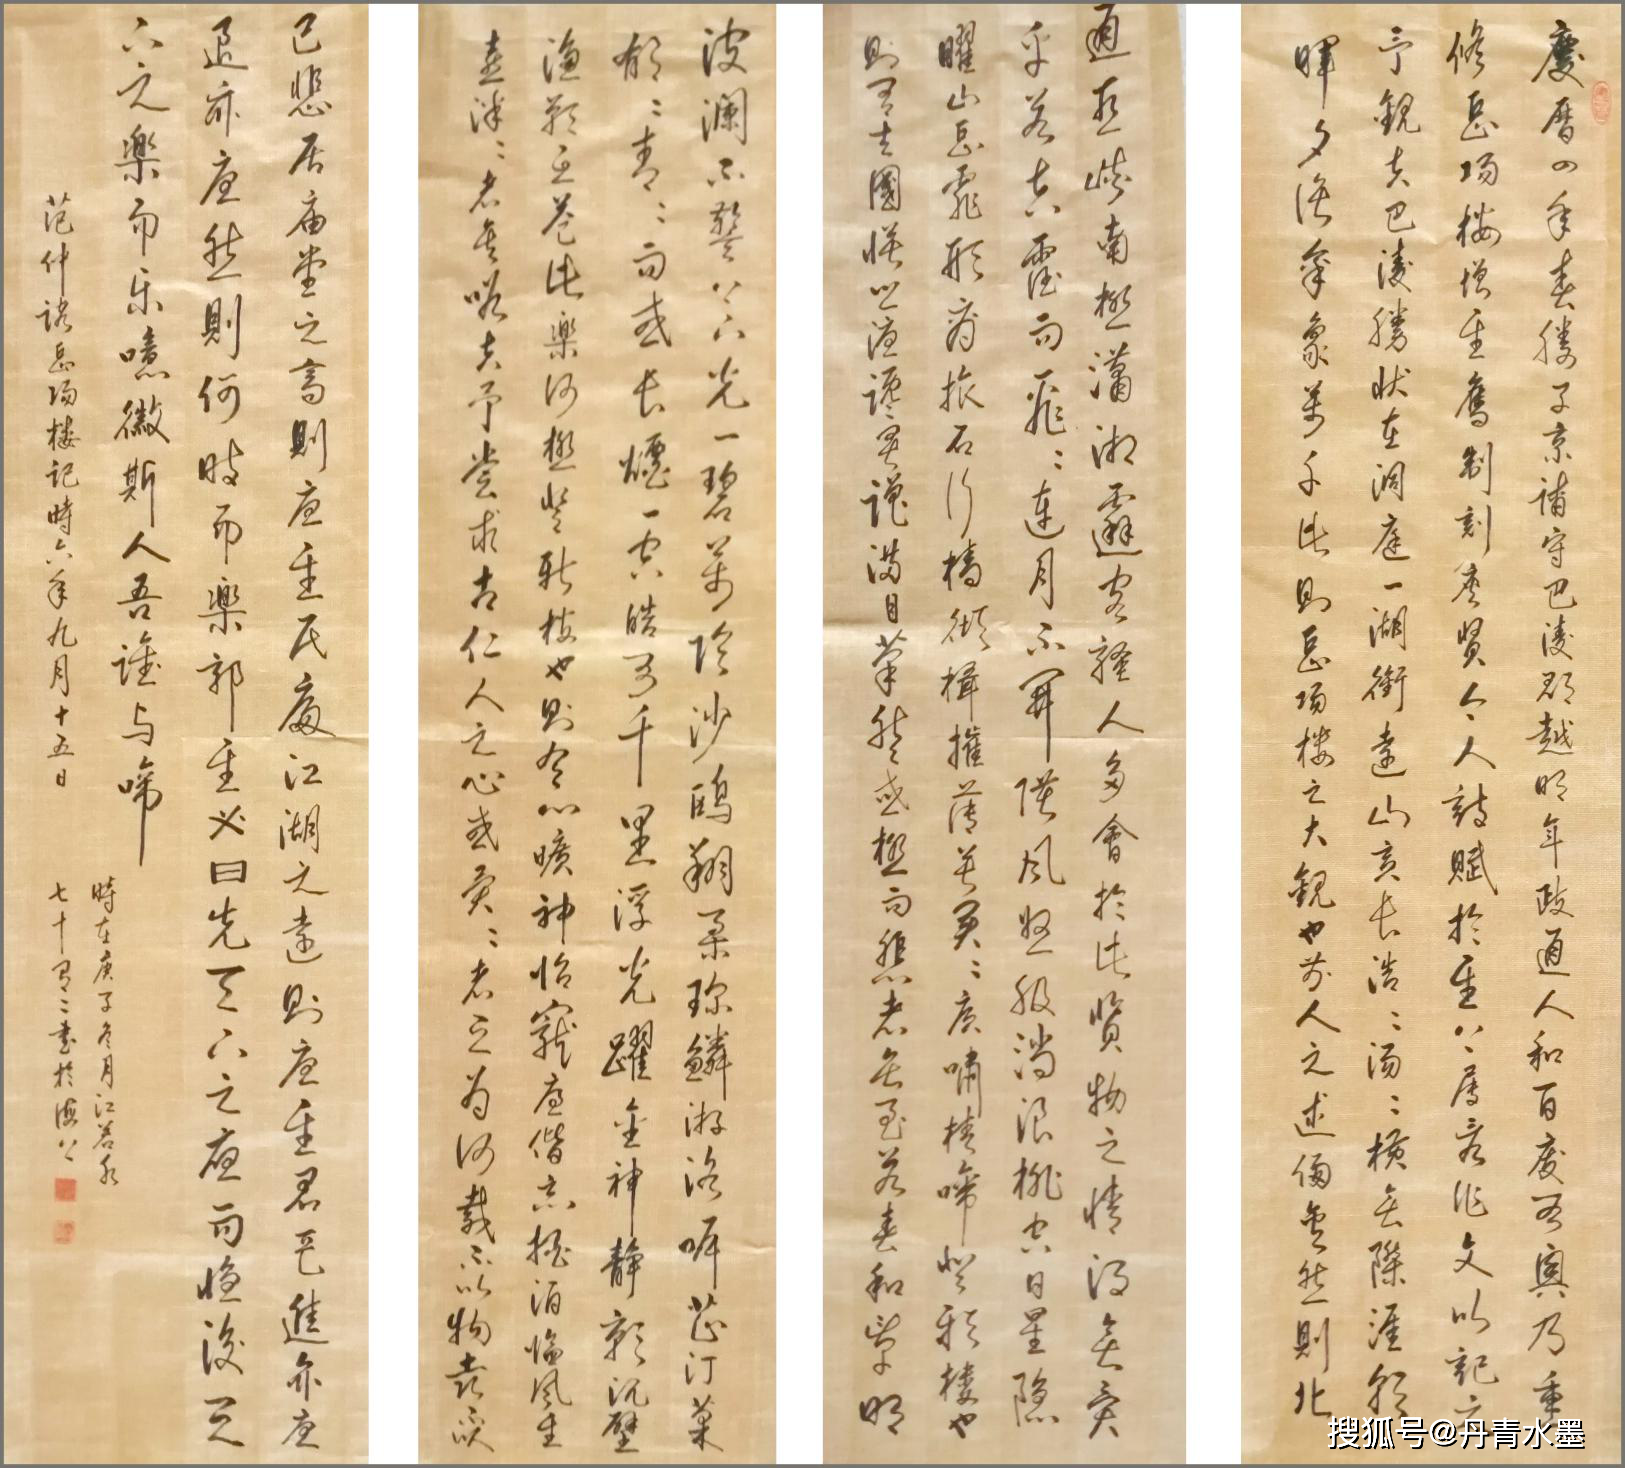 慶曆四年春滕子京謫守巴陵郡越明年政通人和百廢具興乃重
修岳陽樓增其舊制刻唐賢今人詩賦於其上屬予作文以記之
予觀夫巴陵勝狀在洞庭一湖銜遠山吞長江浩浩湯湯橫無際涯朝
暉夕陰氣象萬千此則岳陽樓之大觀也前人之述備矣然則北
通巫峽南極瀟湘遷客騷人多會於此覽物之情得無異
乎若夫霪雨霏霏連月不開陰風怒號濁浪排空日星隱
曜山岳潛形商旅不行檣傾楫摧薄暮冥冥虎嘯猿啼登斯樓也
則有去國懷鄉憂讒畏譏滿目蕭然感極而悲者矣至若春和景明
波瀾不驚上下天光一碧萬頃沙鷗翔集錦鱗游泳岸芷汀蘭
郁郁青青而或長煙一空皓月千里浮光躍金静影沉璧
漁歌互答此樂何極登斯樓也則有心曠神怡寵辱偕忘把酒臨風其
喜洋洋者矣嗟夫予嘗求古仁人之心或異二者之為何哉不以物喜不以
己悲居廟堂之高則憂其民處江湖之遠則憂其君是進亦憂
退亦憂然則何時而樂耶其必曰先天下之憂而憂後天
下之樂而乐噫微斯人吾誰与歸
范仲淹岳陽樓記時六年九月十五日
時在庚子冬月江
七十有二書於海上
搜狐号@丹青水墨